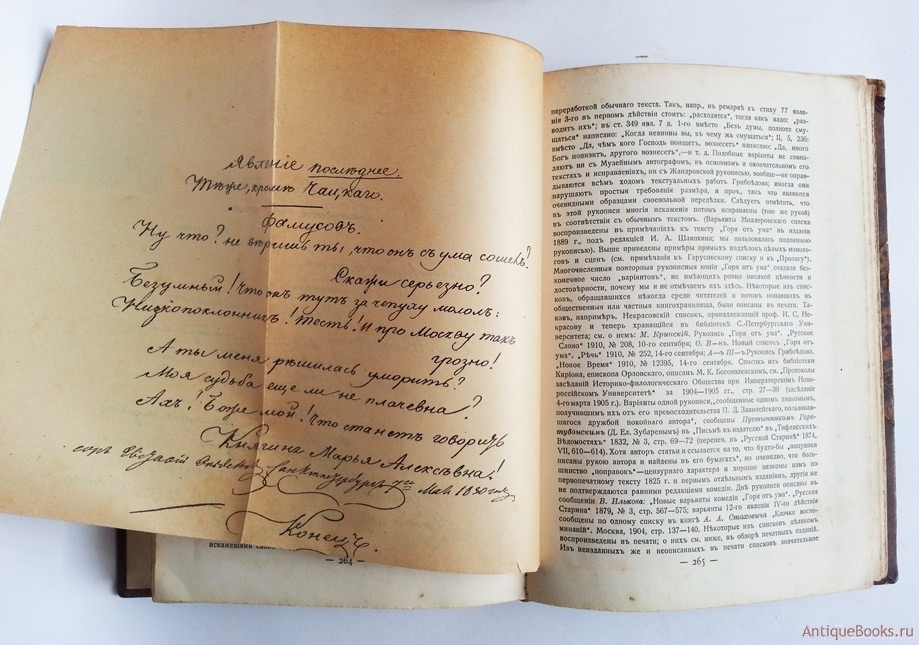 Явленіе послѣднее.
Тѣже, кромѣ Чацкаго.
Фамусовъ.
Ну что? не вѣришь ты, что онъ съ ума сошелъ?
Скажи серьезно?
Безумный! Что онъ тутъ за чепуху мололъ:
Низкопоклонникъ! тесть! и про Москву такъ
грозно!
А ты меня рѣшилась уморить?
Моя судьба еще ли не плачевна?
Ахъ! Боже мой! что станетъ говорить
Княгиня Марья Алексѣвна!
Конецъ.
— 264 —
переработкой обычнаго текста. Такъ, напр., въ ремаркѣ къ стиху 77 явле-
нія 3-го въ первомъ дѣйствіи стоитъ: „расходятся“, тогда какъ надо: „раз-
водитъ ихъ“; въ ст. 349 явл. 7 д. 1-го вмѣсто „Безъ думы, полноте сму-
щаться“ написано: „Когда невинны вы, къ чему жъ смущаться“; II, 5, 236:
вмѣсто „Да, чѣмъ кого Господь поищетъ, вознесетъ“ написано: „Да, иного
Богъ понизитъ, другого вознесетъ“,—и т. д. Подобные варіанты не совпа-
даютъ ни съ Музейнымъ автографомъ, въ основномъ и окончательномъ его
текстахъ и исправленіяхъ, ни съ Жандровской рукописью, вообще—не оправ-
дываются всѣмъ ходомъ текстуальныхъ работъ Грибоѣдова; иногда они
нарушаютъ простыя требованія размѣра, и проч., такъ что являются
очевидными образцами своевольной передѣлки. Слѣдуетъ отмѣтить, что
въ этой рукописи многія искаженія потомъ исправлены (тою же рукой)
въ соотвѣтствіи съ обычнымъ текстомъ. (Варьянты Миллеровскаго списка
воспроизведены въ примѣчаніяхъ къ тексту „Горя отъ ума“ въ изданіи
1889 г., подъ редакціей И. А. Шляпкина; мы пользовались подлинною
рукописью). Выше приведены примѣры прямыхъ поддѣлокъ цѣлыхъ моноло-
говъ и сценъ (см. примѣчанія къ Гарусовскому списку и къ Прологу).
Многочисленныя повторныя рукописныя копіи „Горя отъ ума“ создали без-
конечное число „варіантовъ“, не имѣющихъ ровно никакой цѣнности и
достовѣрности, почему мы и не отмѣчаемъ ихъ здѣсь. Нѣкоторые изъ спис-
ковъ, обращавшихся нѣкогда среди читателей и потомъ попавшихъ въ
общественныя или частныя книгохранилища, были описаны въ печати. Та-
ковъ, напримѣръ, Некрасовскій списокъ, принадлежавшій проф. И. С. Не-
красову и теперь хранящійся въ библіотекѣ С.-Петербургскаго Унив-
ерситета; см. о немъ: М. Кринскій. Рукопись „Горя отъ ума“. „Русское
Слово“ 1910, № 208, 10-го сентября; О. В—нъ, Новый списокъ „Горя отъ
ума“. „Рѣчь“ 1910, № 252, 14-го сентября; А—ъ Ш—ъ Рукопись Грибоѣдова,
„Новое Время“ 1910, № 12395, 14-го сентября. Списокъ изъ библіотеки
Каріона, епископа Орловскаго, описанъ М. К. Богоявленскимъ, см. „Протоколы
засѣданій Историко-филологическаго Общества при Императорскомъ Ново-
россійскомъ Университетѣ“ за 1904—1905 гг., стр. 27—30 (засѣданіе
4-го марта 1905 г.). Варіанты одной рукописи, „сообщенные однимъ знакомымъ,
получившимъ ихъ отъ его превосходительства П. Д. Завилейскаго, пользовав-
шагося дружбой покойнаго автора“, сообщены Пустынникомъ Горе-
тубанскимъ (Д. Ел. Зубаревымъ) въ „Письмѣ къ издателю“ въ „Тифлисскихъ
Вѣдомостяхъ“ 1832, № 3, стр. 69—72 (перепеч. въ „Русской Старинѣ“ 1874,
VII, 610—614). Хотя авторъ статьи и ссылается на то, что будто-бы „поправки
писаны рукою автора и найдены въ его бумагахъ“, но очевидно, что боль-
шинство „поправокъ“—цензурнаго характера и хорошо знакомы намъ по
первопечатному тексту 1825 г. и первымъ отдѣльнымъ изданіямъ, другія же
не подтверждаются ранними редакціями комедіи. Двѣ рукописи описаны въ
сообщеніи В. Илькова: „Новые варьянты комедіи „Горя отъ ума“. „Русская
Старина“ 1879, № 3, стр. 567—575; варьянты 12-го явленія IV-го дѣйствія
сообщены по одному списку въ книгѣ А. А. Стаховича „Клочки воспо-
минаній“. Москва, 1904, стр. 137—140. Нѣкоторые изъ списковъ цѣликомъ
воспроизведены въ печати; о нихъ см. ниже, въ обзорѣ печатныхъ изданій.
Изъ неизданныхъ же и неописанныхъ въ печати списковъ значительное
— 265 —
AntiqueBooks.ru